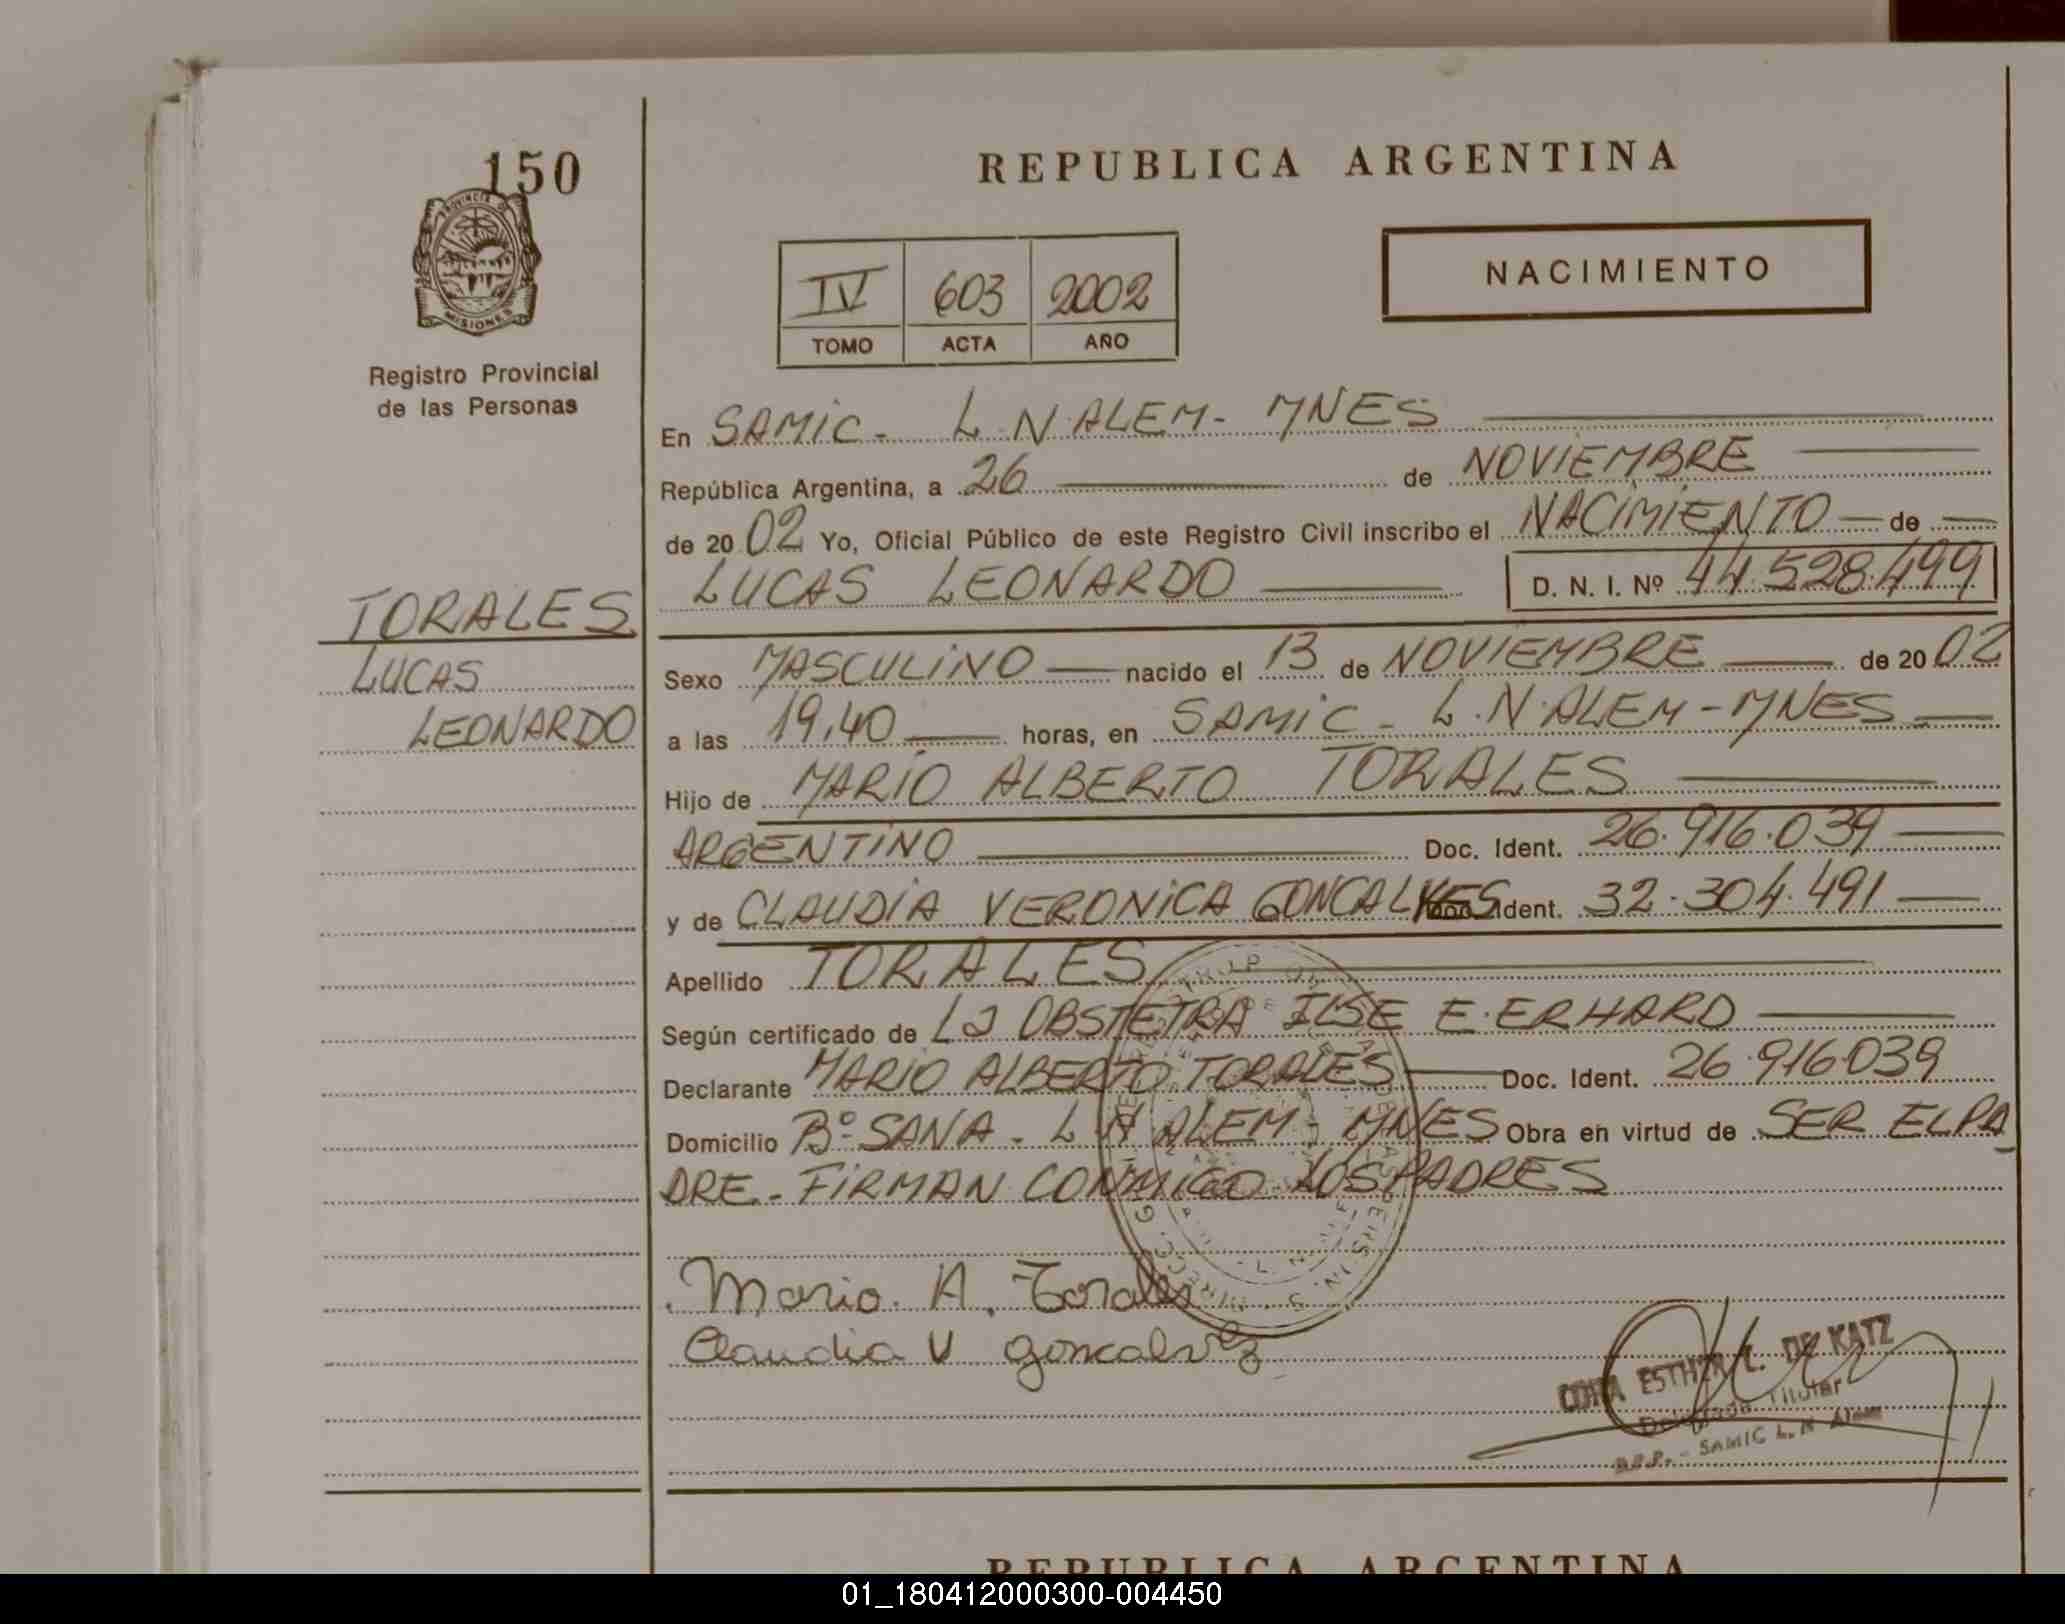 150
REPUBLICA ARGENTINA
PROVINCIA DE
MISIONES
Registro Provincial
de las Personas
NACIMIENTO
IV 603 2002
TOMO ACTA AÑO
En SAMIC - L.N.ALEM - MNES
República Argentina, a 26 de NOVIEMBRE
de 2002 Yo, Oficial Público de este Registro Civil inscribo el NACIMIENTO de
LUCAS LEONARDO D. N. I. Nº 44.528.499
TORALES
LUCAS
LEONARDO
Sexo MASCULINO nacido el 13 de NOVIEMBRE de 2002
a las 19,40 horas, en SAMIC - L.N.ALEM - MNES
Hijo de MARIO ALBERTO TORALES
ARGENTINO Doc. Ident. 26.916.039
y de CLAUDIA VERONICA GONCALVES Doc. Ident. 32.304.491
Apellido TORALES
Según certificado de La OBSTETRA ILSE E. ERHARD
Declarante MARIO ALBERTO TORALES Doc. Ident. 26.916.039
Domicilio Bº SANA - L N ALEM - MNES Obra en virtud de SER EL PA
DRE.- FIRMAN CONMIGO LOS PADRES
Mario. A. Torales
Claudia V goncalvez
CORA ESTHER L. DE KATZ
Delegada Titular
SAMIC L. N. Alem
REPUBLICA ARGENTINA
01_180412000300-004450